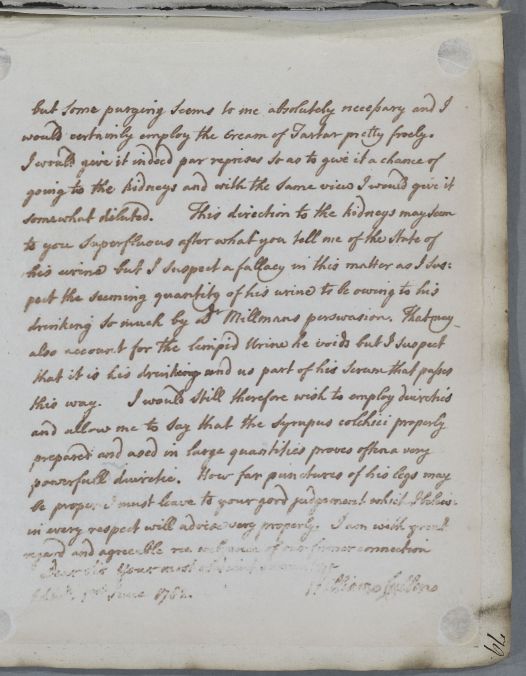 but some purging seems to me absolutely necessary and I
would certainly employ the Cream of Tartar pretty freely.
I would give it indeed par reprises so as to give it a chance of
going to the kidneys and with the same view I would give it
somewhat diluted. This direction to the kidneys may seem
to you superfluous after what you tell me of the State of
his urine but I suspect a fallacy in this matter as I sus:
pect the seeming quantity of his urine to be owing to his
drinking so much by Dr Millmans perswasion. That may
also account for the limpid Urine he voids but I suspect
that it is his drinking and no part of his Serum that passes
this way. I would still therefore wish to employ diuretics
and allow me to say that the Syrupus colchici properly
prepared and used in large quantities proves often a very
powerfull diuretic. How far punctures of his legs may
be proper I must leave to your good judgement which I believe
in every respect will advise very properly. I am with great
regard and agreeable of our former connection
Dear Sir Your most
June 1782. William Cullen
79